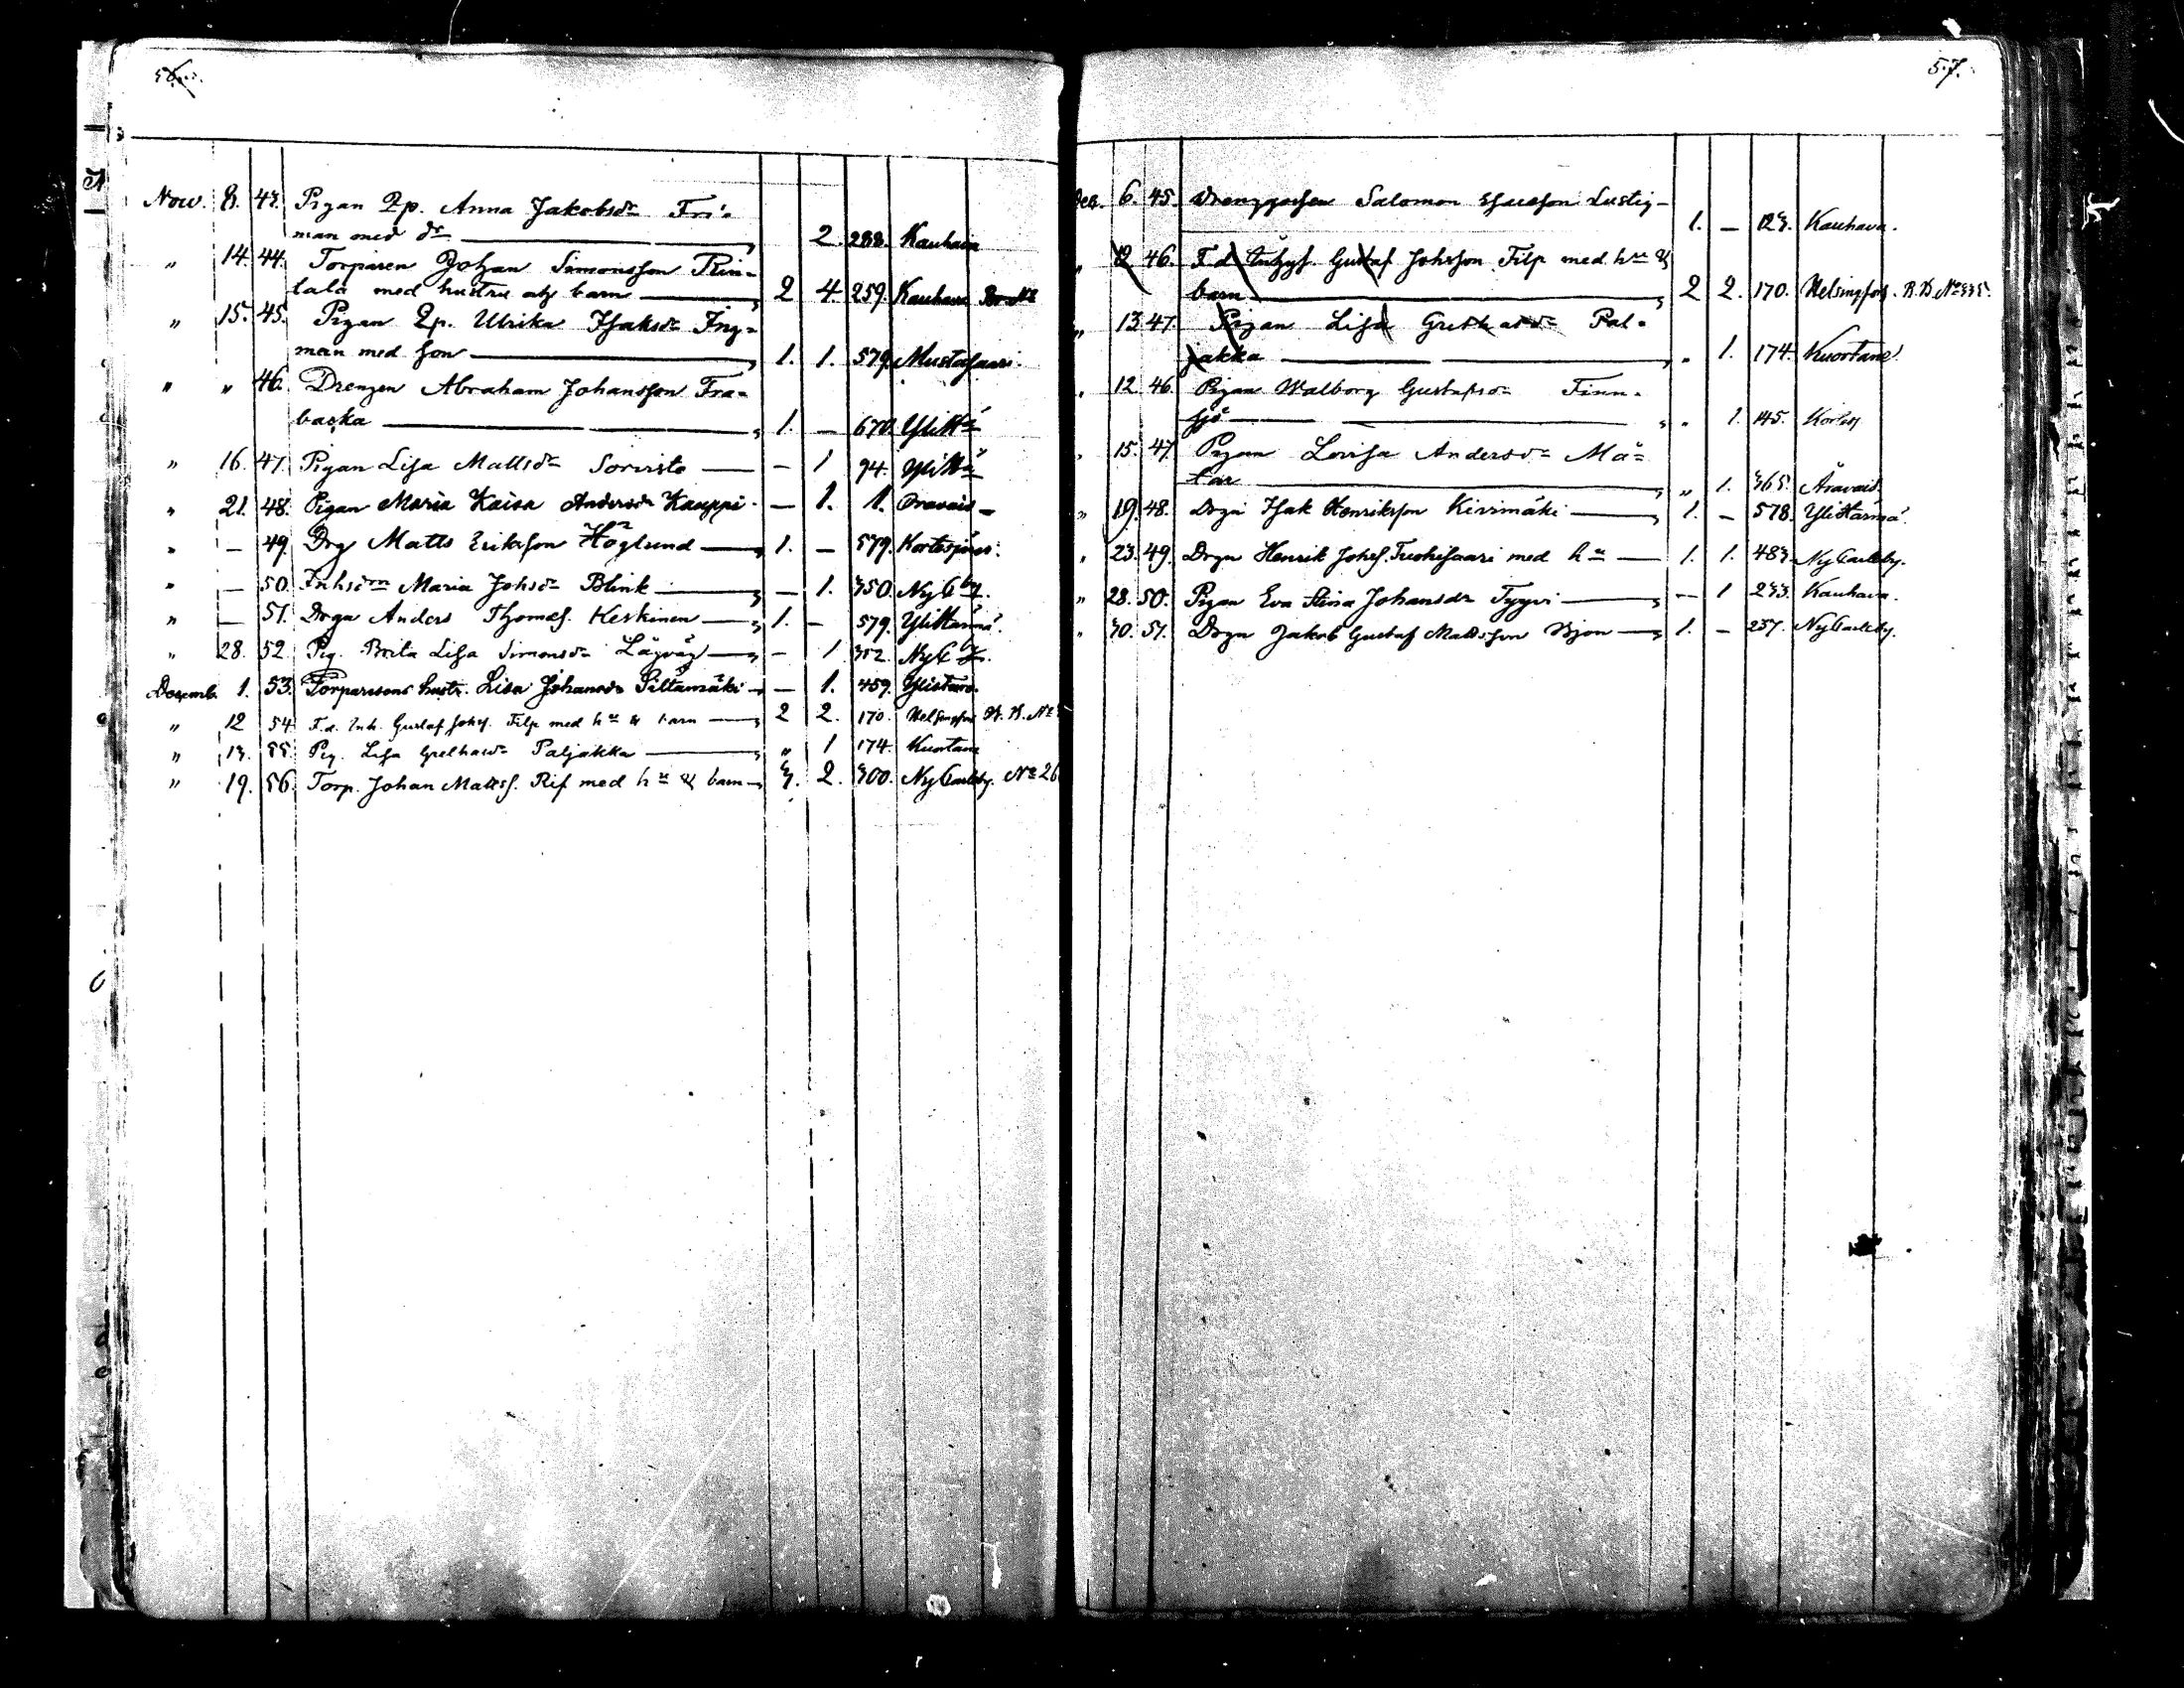 Nov. 8. 43. Pigan Qp. Anna Jakobsdr Fri-
man med dr 2. 288. Kauhava
" 14. 44. Torparen Johan Simonsson Rin-
tala med hustru och barn 2 4. 259. Kauhava
" 15. 45. Pigan Qp. Ulrika Isaksdr Ing-
man med son 1. 1. 579. Mustasaari.
" " 46. Drengen Abraham Johansson Fra-
backa 1. — 670.
" 16. 47. Pigan Lisa Mattsdr — 1 94.
" 21. 48. Pigan Maria Kaisa Andersdr Kauppi — 1. 1. Oravais
" — 49. Drg Matts Eriksson Höglund 1. — 579. Kortesjärvi.
" — 50. Maria Johsdr Blink — 1. 350. Ny C by.
" — 51. Drgn Anders Thomas. Keskinen 1. — 579. Ylihärmä.
" 28. 52. Pig. Brita Lisa Simonsdr — 1 352. Ny C by.
Decemb. 1. 53. Torparesons hustr. Lisa Johansdr Siltamäki — 1. 459. Ylistaro.
" 12 54 F.d. Inh. Gustaf Johss. Filp med hu & barn 2 2. 170. Helsingfors
" 13. 55. Pig. Lisa Grelhasdr Paljakka " 1 174. Kuortane
" 19. 56. Torp. Johan Matts. Rif med hu & barn 3. 2. 300. Ny Carleby. No 26
57.
Dec. 6. 45. Salomon Esaiasson Lustig
1. — 123. Kauhava.
" 12 46. F.d. Gustaf Johsson Filp med hu &
barn 2 2. 170. Helsingfors.
" 13 47. Pigan Lisa Grelhasdr Pal-
jakka " 1. 174. Kuortane.
" 12. 46. Pigan Walborg Gustafsdr Finn-
sjö " 1. 145.
" 15. 47. Pigan Lovisa Andersdr Mä-
" 1. 365.
" 19. 48. Drgn Isak Henriksson Kivimäki 1. — 578. Ylihärmä.
" 23. 49. Drgn Henrik Johss. Tuohisaari med hu 1. 1. 483. Ny Carleby.
" 28. 50. Pigan Eva Stina Johansdr Tyyvi — 1 233. Kauhava.
" 30. 51. Drgn Jakob Gustaf Mattsson Bjon 1. — 257. Ny Carleby.